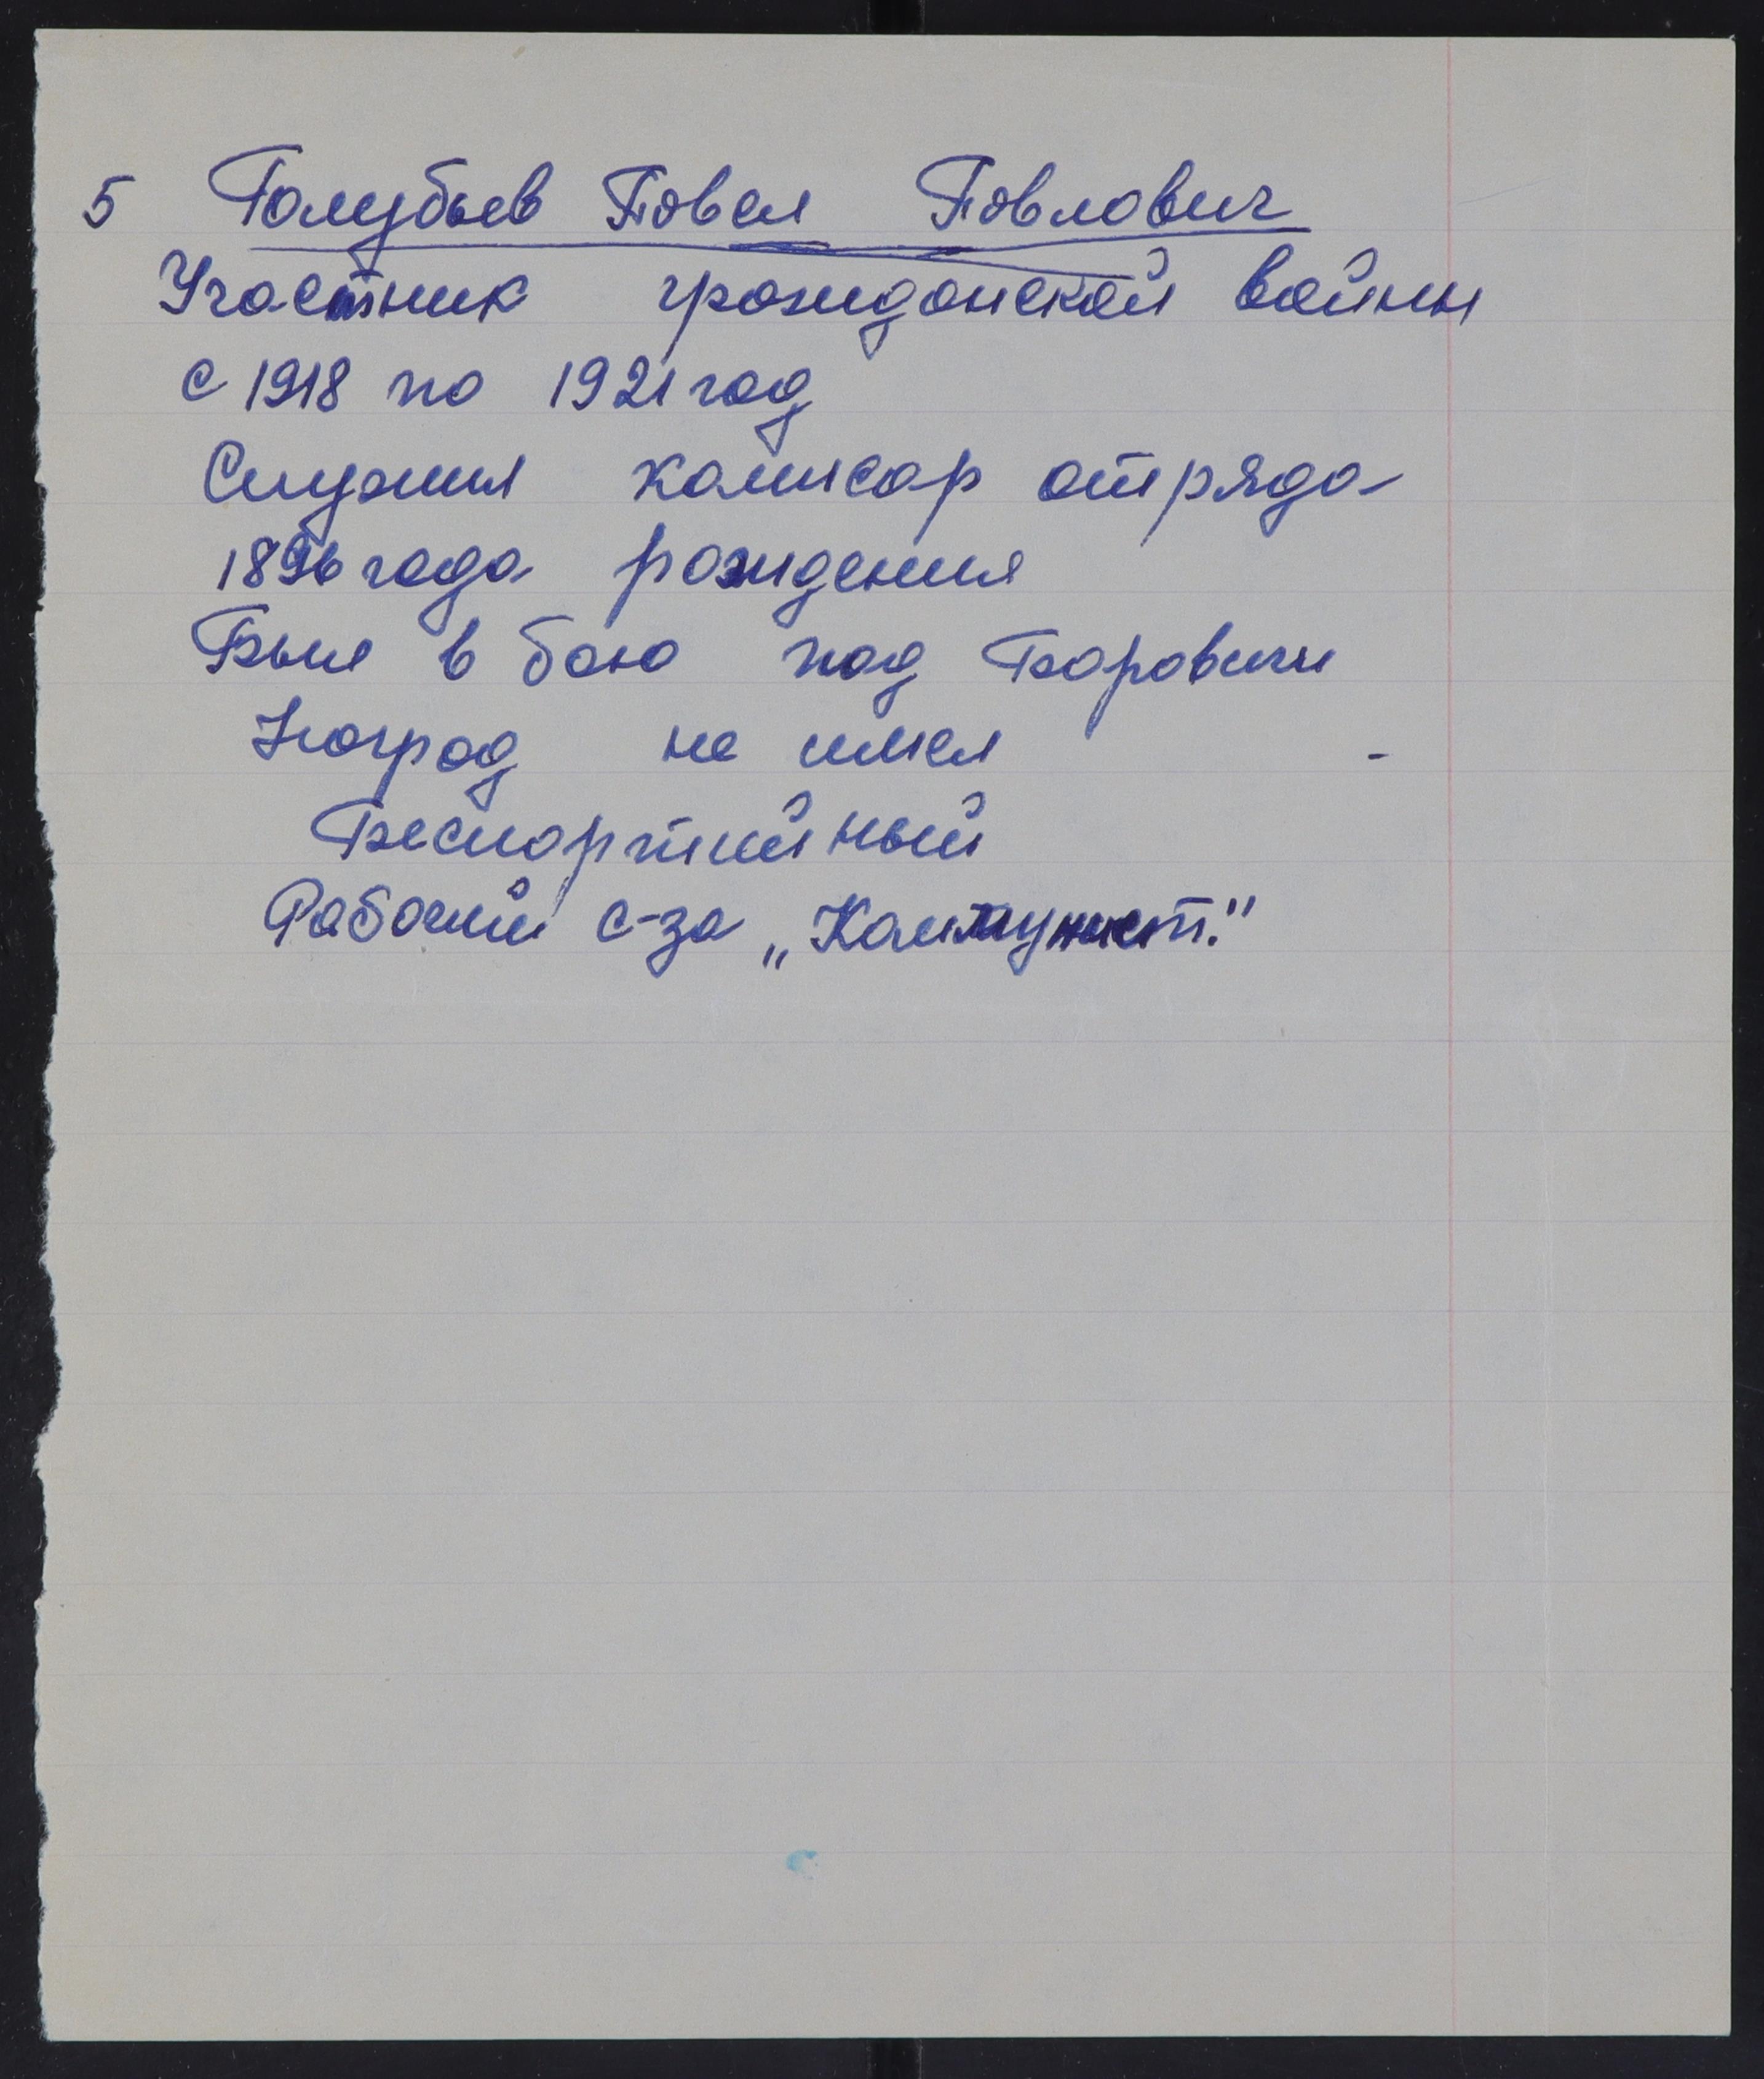 5 Голубьев Павел Павлович
Участник гражданской войны
с 1918 по 1921 год
Служил комисар отряда
1896 года рождения
Был в бою под Боровичи
Наград не имел
Беспартийный
Рабочий с-за „Коммунист."